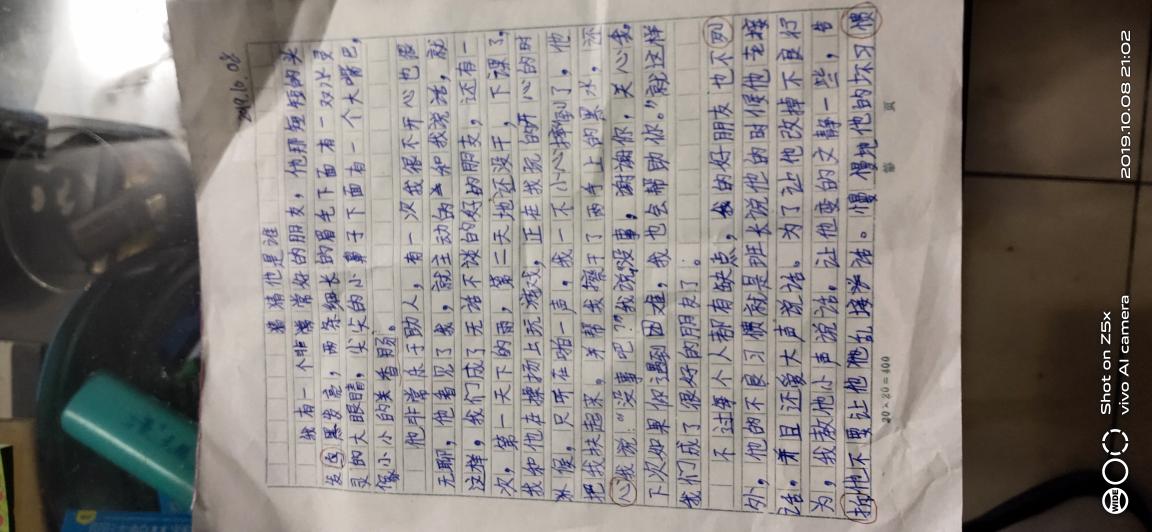 2019.10.08
猜猜他是谁
我有一个非常好的朋友，他那短短的头
发乌黑发亮，两条细长的眉毛下面有一双水灵
灵的大眼睛，尖尖的小鼻子下面有一个大嘴巴，
像小小的关香肠。
他非常乐于助人，有一次我很不开心也很
无聊，他看见了我，就主动的来和我说话，就
这样，我们成了无话不谈的好的朋友，还有一
次，第一天下的雨，第二天地还没干，下课了，
我和他在操场上玩游戏，正在我玩的开心的时
候，只听在啪一声，我一不小心摔倒了，他
把我扶起来，并帮我擦干了两手上的黑水，还
心我说：“没事吧？”我说没事，谢谢你，关心我，
下次如果你遇到困难，我也会帮助你。”就这样
我们成了很好的朋友了。
不过每个人都有缺点，我的好朋友也不例
外，他的不良习惯就是班长说他的时候他去接
话。并且还爱大声说话。为了让他改掉不良行
为，我教他小声说话，让他变的文静一些，告
诉他不要让他他乱接话。慢慢地他的坏习惯
20×20=400
第 页
2019.10.08 21:02
Shot on Z5x
vivo AI camera
WIDE